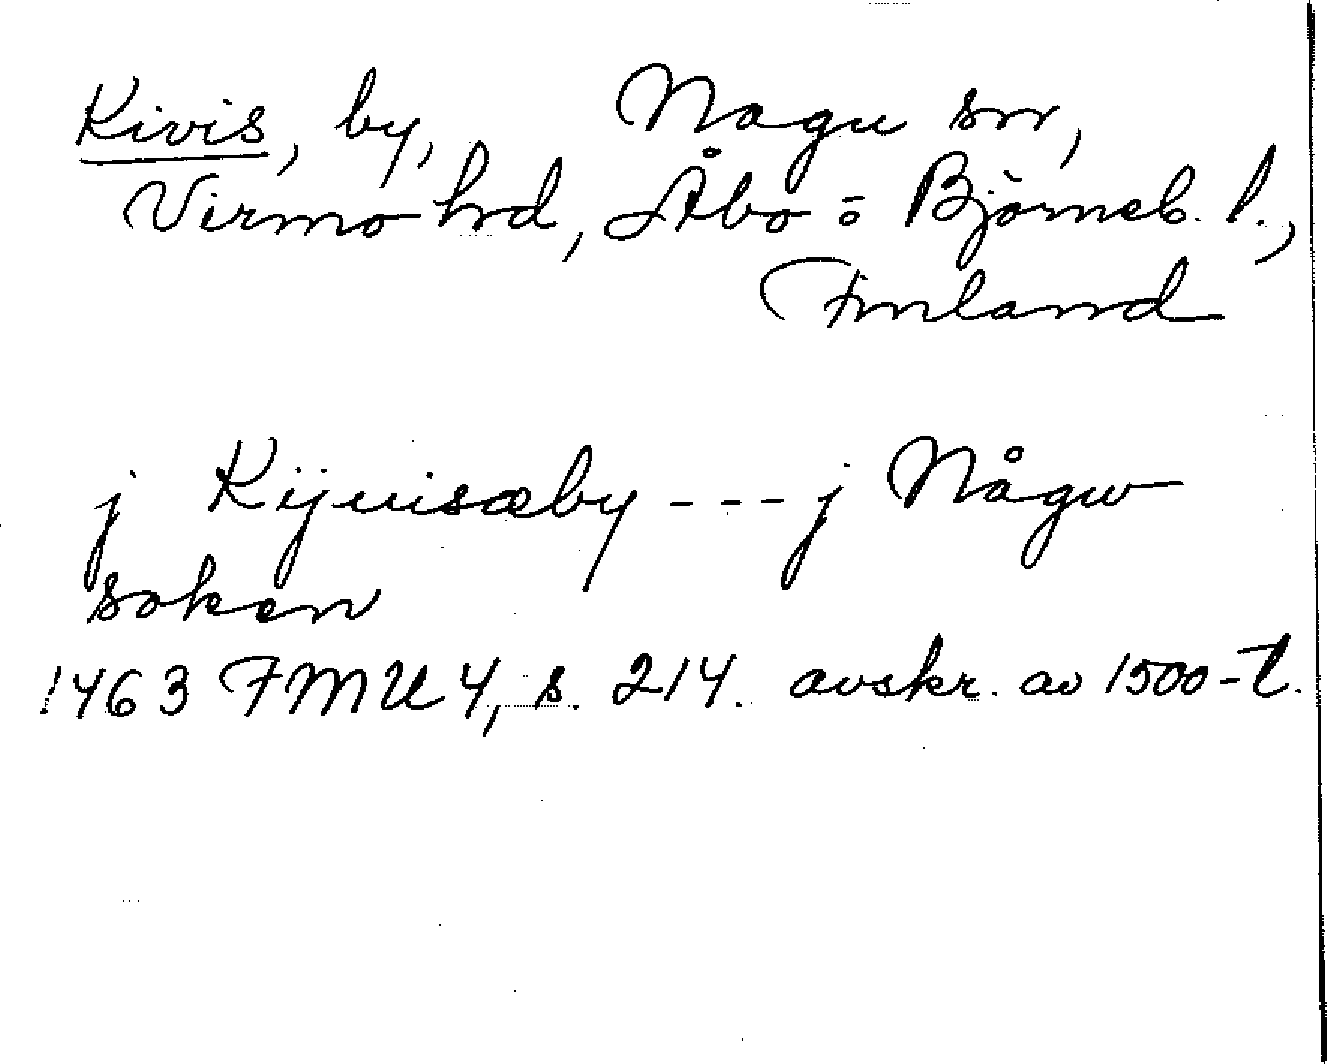 Kivis, by, Nagu sn,
Virmo hd, Åbo o Björneb. l.,
Finland
j Kijuisæby --- j Någw
soken
1463 FMU 4, s. 214. avskr. av 1500-t.